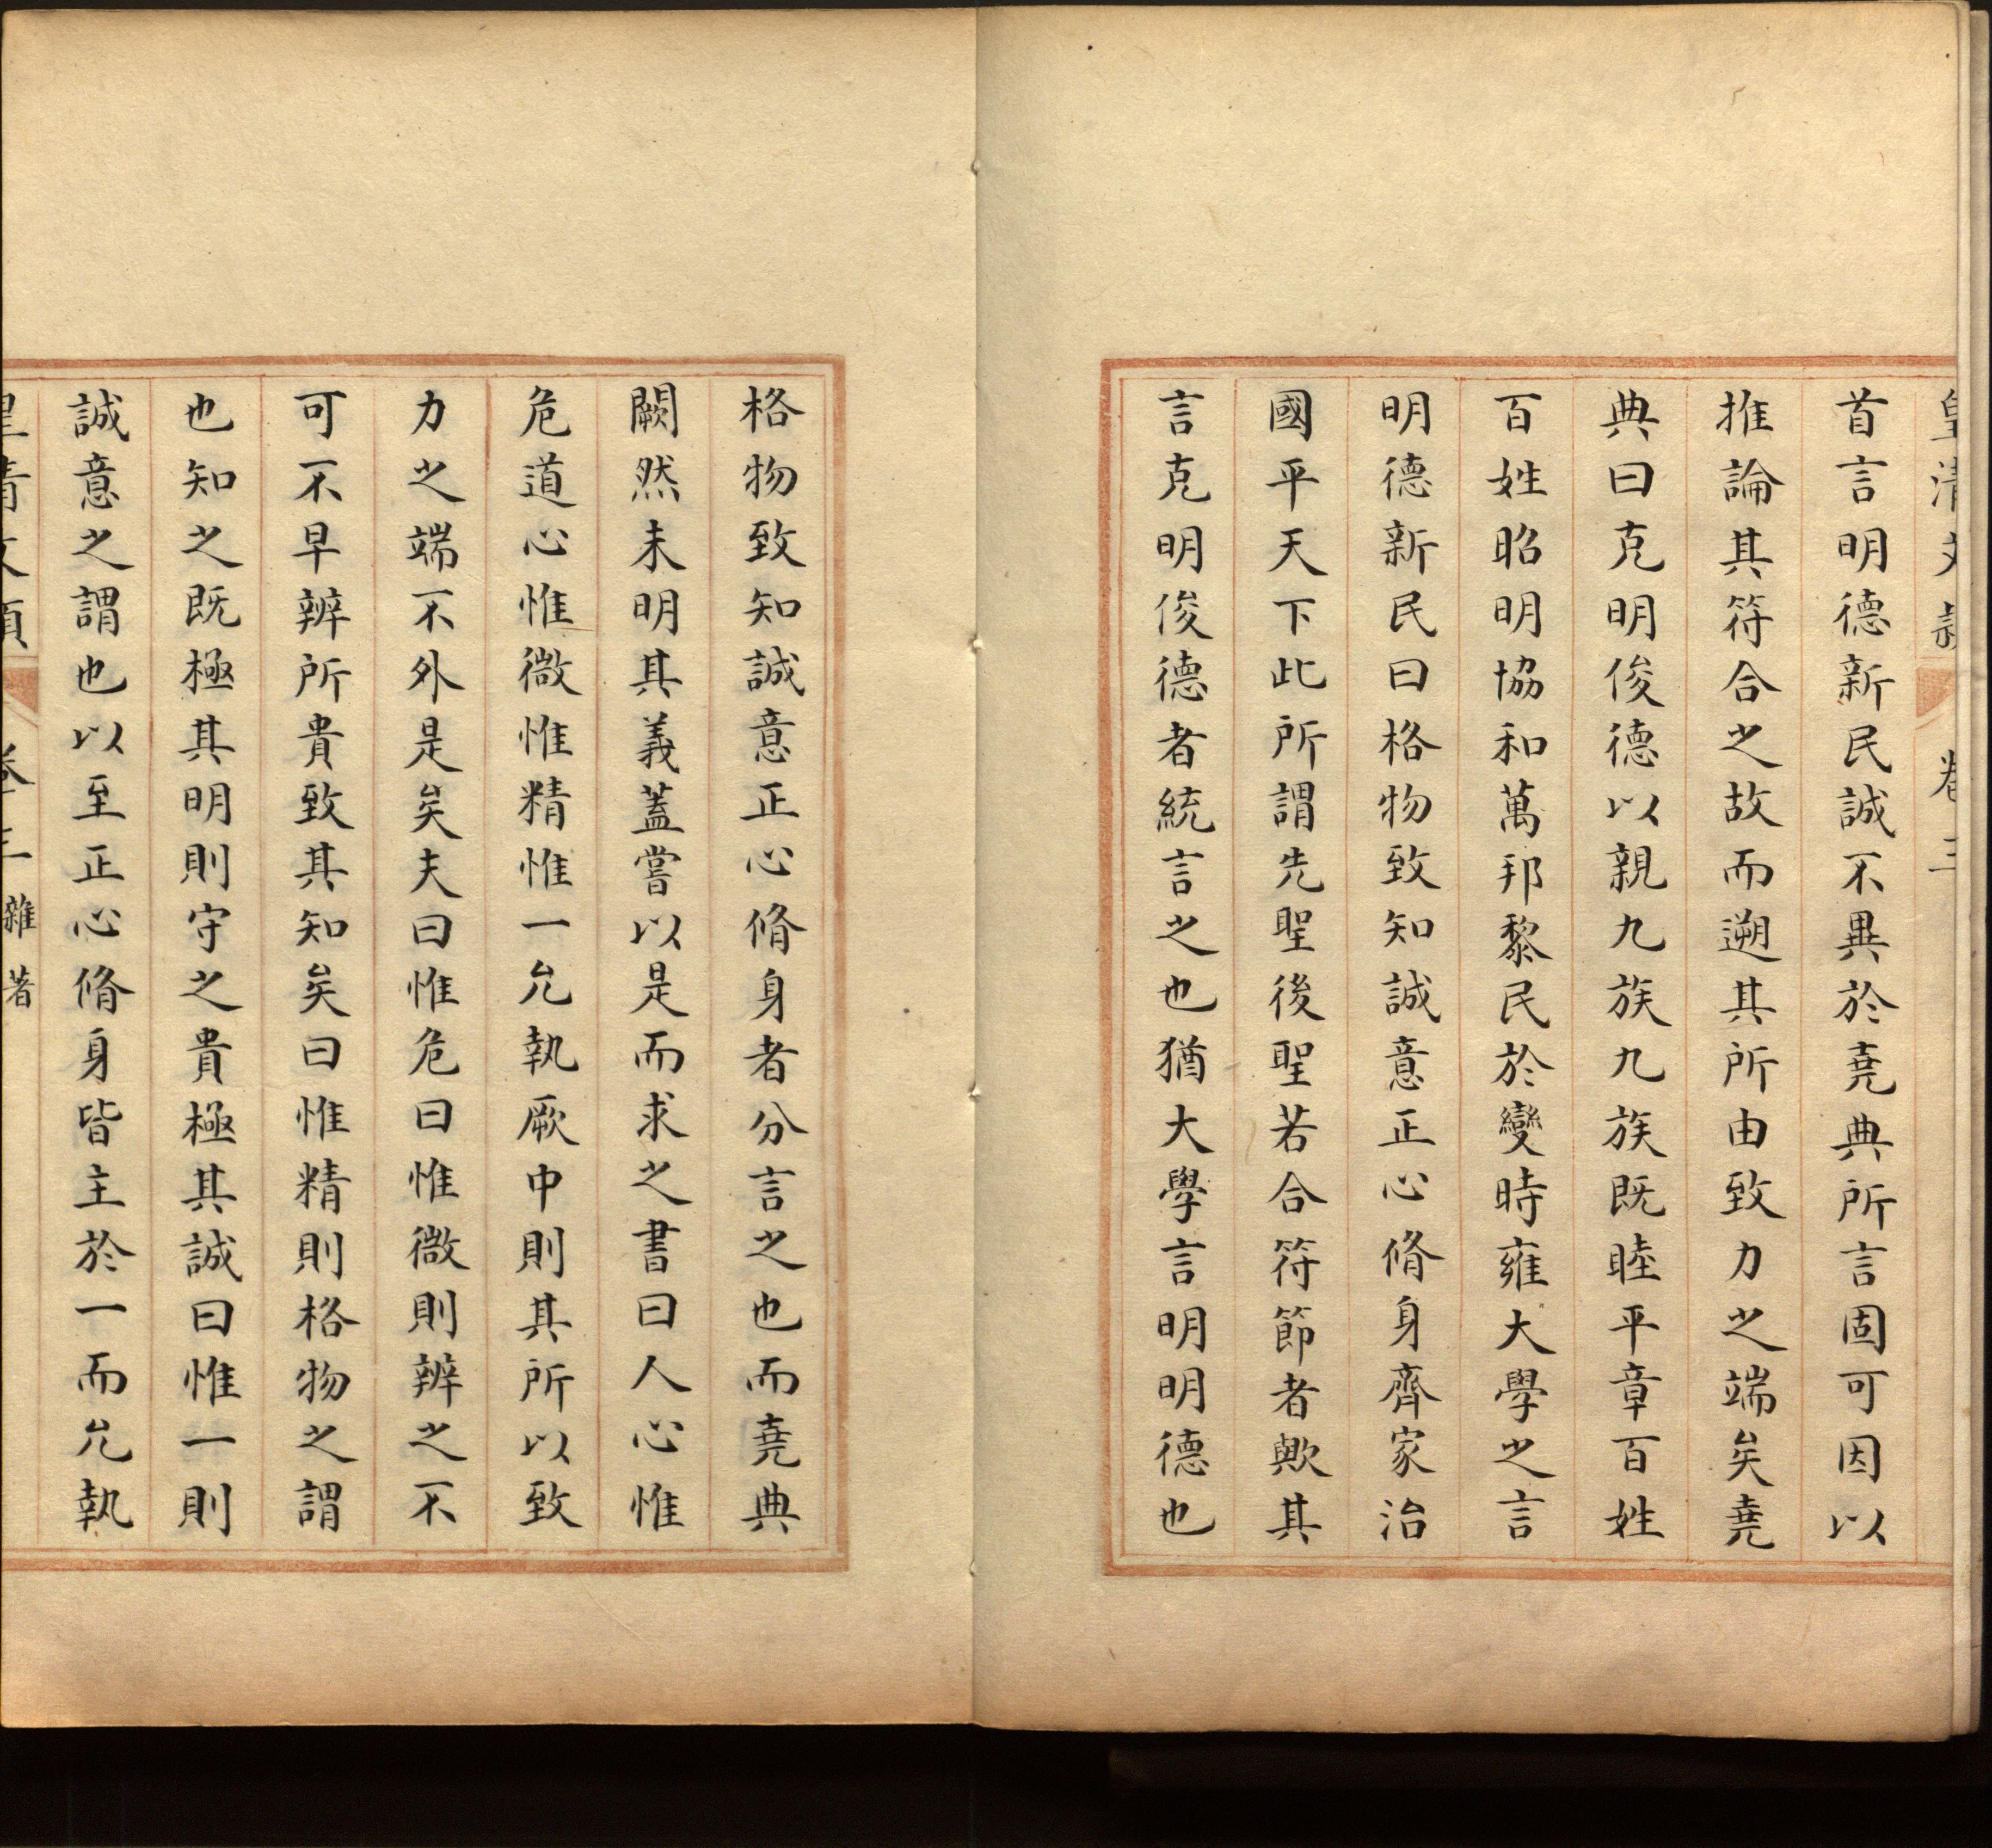 皇清文穎 卷三
首言明德新民誠不異於堯典所言固可因以
推論其符合之故而遡其所由致力之端矣堯
典曰克明俊德以親九族九族既睦平章百姓
百姓昭明協和萬邦黎民於變時雍大學之言
明德新民曰格物致知誠意正心脩身齊家治
國平天下此所謂先聖後聖若合符節者歟其
言克明俊德者統言之也猶大學言明明德也
格物致知誠意正心脩身者分言之也而堯典
闕然未明其義蓋嘗以是而求之書曰人心惟
危道心惟微惟精惟一允執厥中則其所以致
力之端不外是矣夫曰惟危曰惟微則辨之不
可不早辨所貴致其知矣曰惟精則格物之謂
也知之既極其明則守之貴極其誠曰惟一則
誠意之謂也以至正心脩身皆主於一而允執
皇清文穎 卷三 雜著